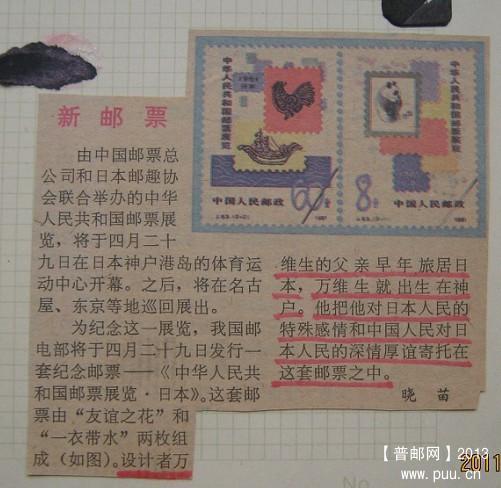 新邮票
由中国邮票总
公司和日本邮趣协
会联合举办的中华
人民共和国邮票展
览，将于四月二十
九日在日本神户港岛的体育运
动中心开幕。之后，将在名古
屋、东京等地巡回展出。
为纪念这一展览，我国邮
电部将于四月二十九日发行一
套纪念邮票——《中华人民共
和国邮票展览·日本》。这套邮
票由“友谊之花”和
“一衣带水”两枚组
成（如图）。设计者万
维生的父亲早年旅居日
本，万维生就出生在神
户。他把他对日本人民的
特殊感情和中国人民对日
本人民的深情厚谊寄托在
这套邮票之中。
晓苗
中华人民共和国邮票展览
60分
中国人民邮政
1981
中华人民共和国邮票展览
8分
中国人民邮政
1981
【普邮网】2013
www.puu.cn
2011
No